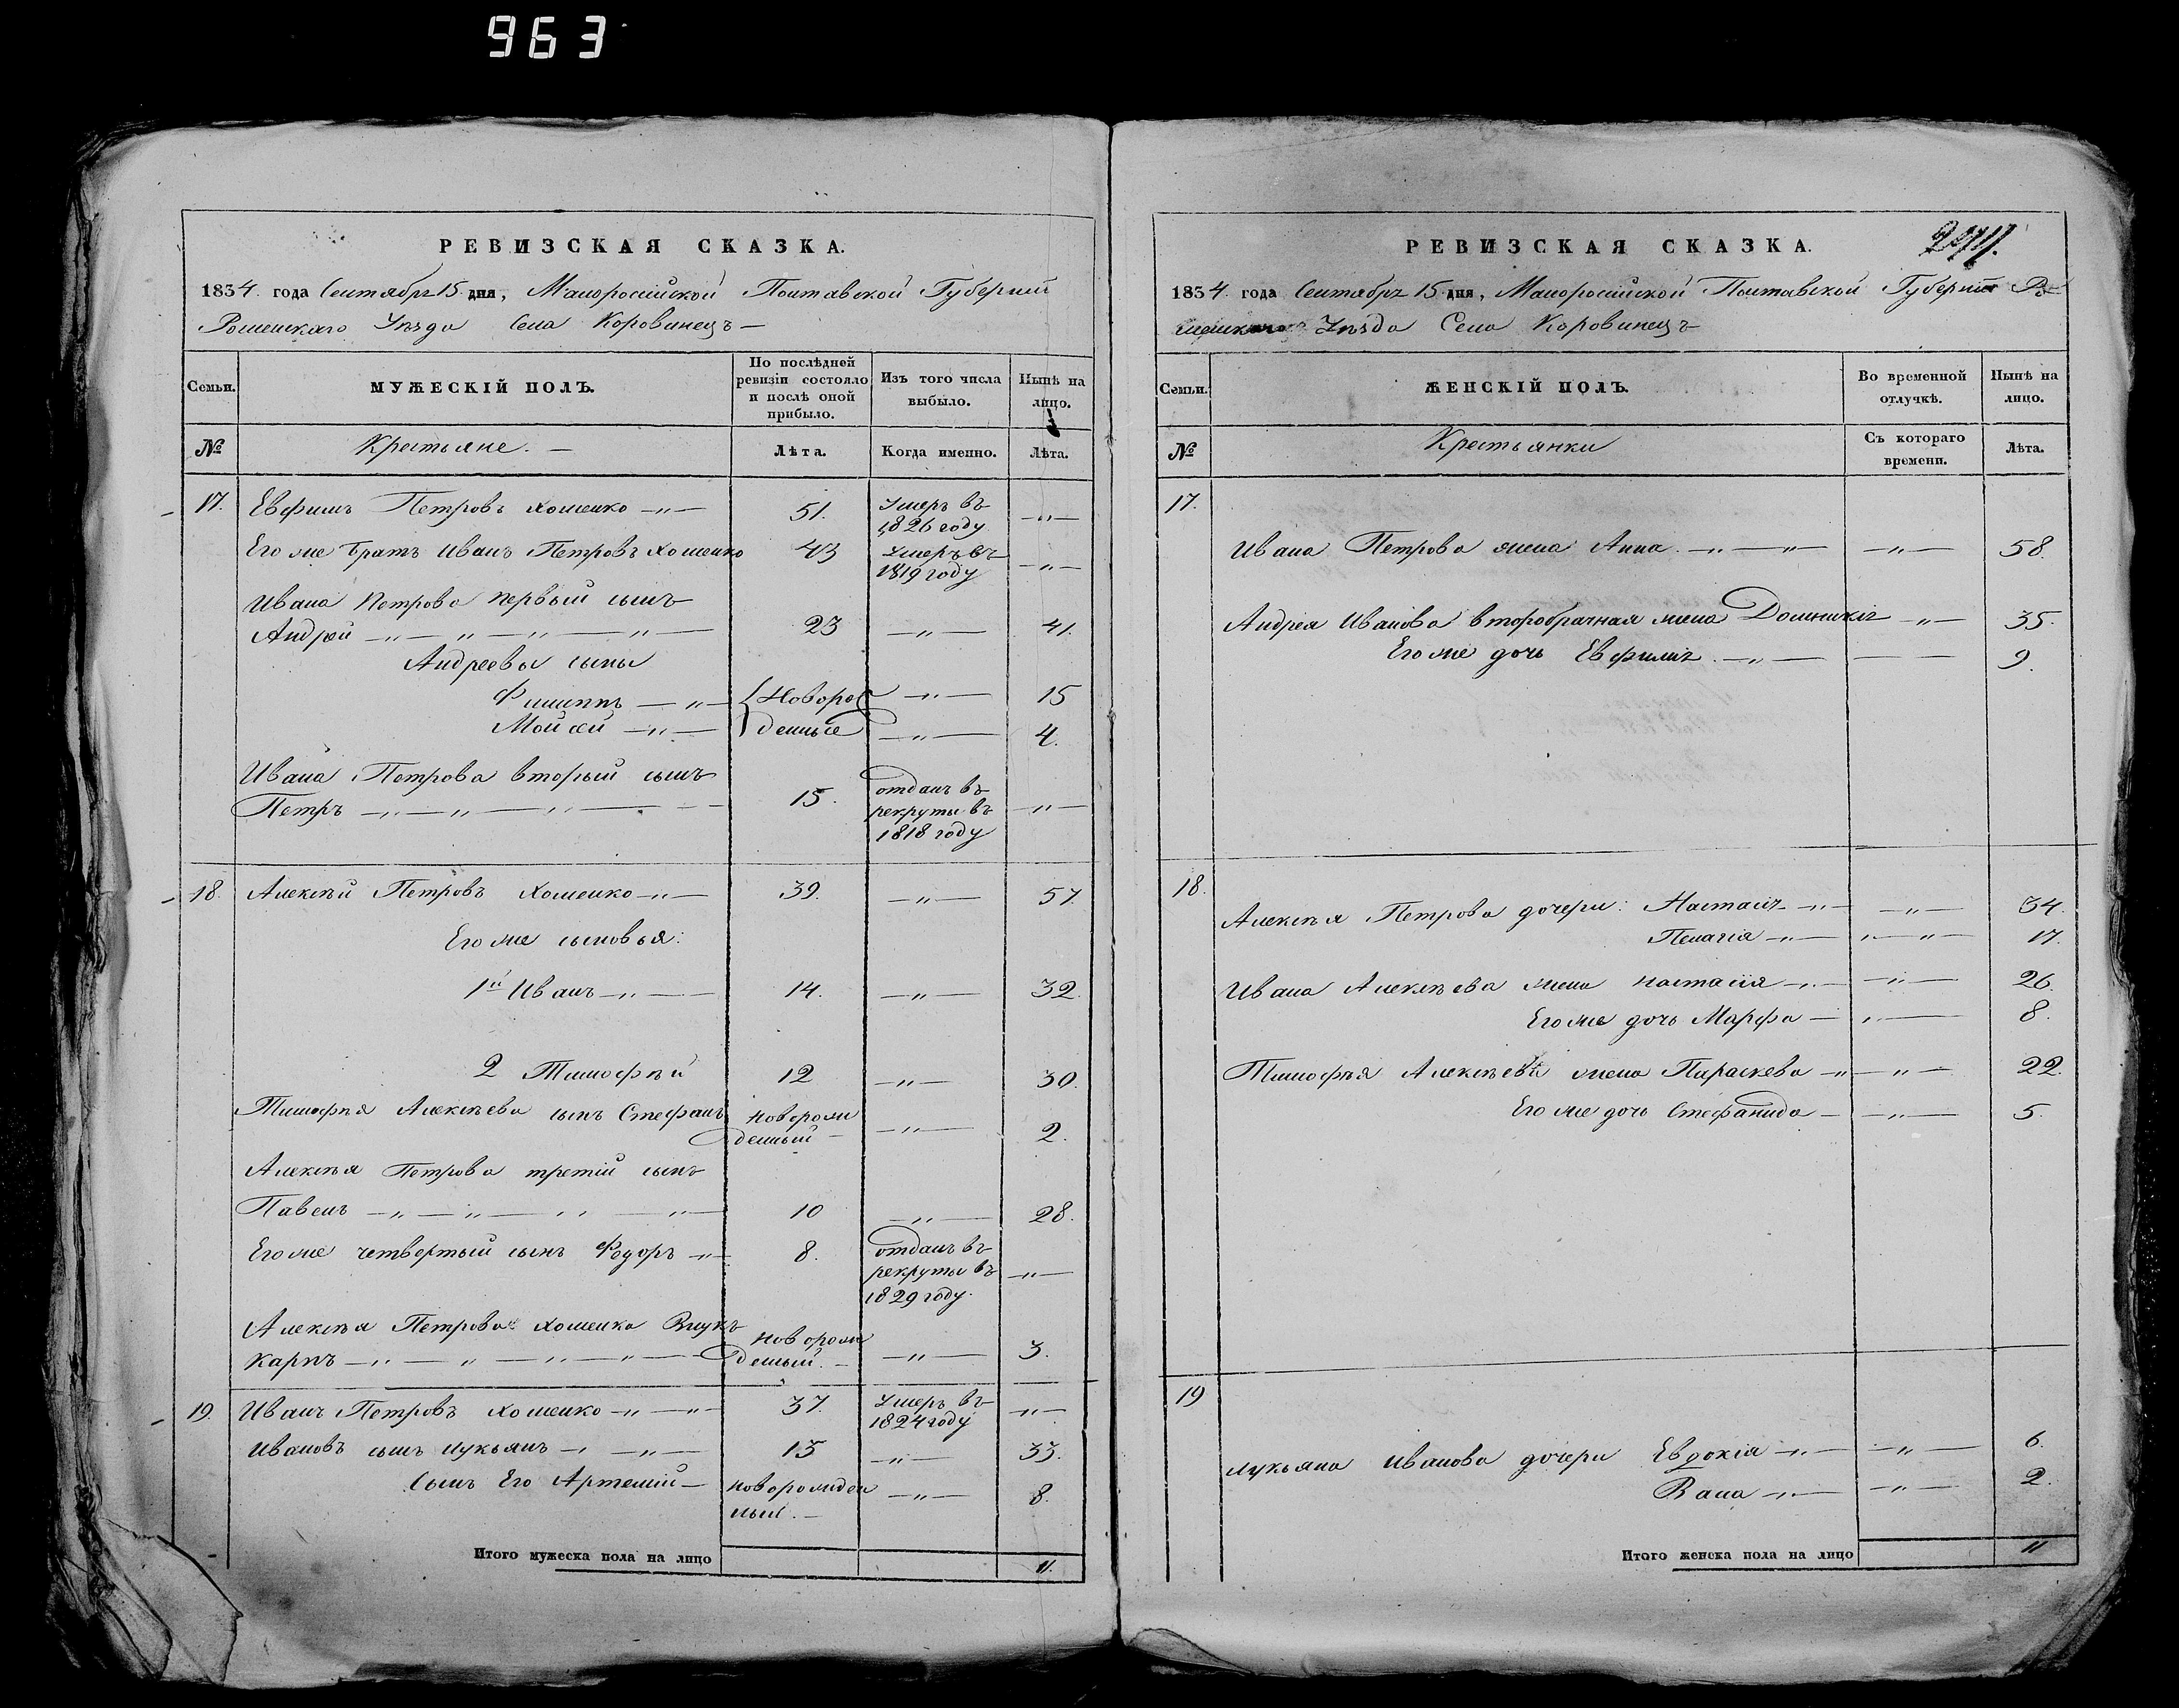 963
РЕВИЗСКАЯ СКАЗКА.
1834. года Сентября 15 дня, Малороссійской Полтавской Губерніи
Роменскаго Уѣзда Села Коровинецъ —
Семьи.
МУЖЕСКІЙ ПОЛЪ.
По послѣдней ревизіи состояло и послѣ оной прибыло.
Изъ того числа выбыло.
Нынѣ на лицо.
№
Крестьяне. —
Лѣта.
Когда именно.
Лѣта.
17. Евфимъ Петровъ Хоменко —„— 51. Умеръ въ 1826 году —„—
Его же братъ Иванъ Петровъ Хоменко 43 Умеръ въ 1819 году —„—
Ивана Петрова первый сынъ
Андрей —„—„—„—„— 23 —„— 41.
Андреевы сыны
Филиппъ —„— Новорож —„— 15
Мойсей —„— денные —„— 4.
Ивана Петрова вторый сынъ
Петръ —„—„—„— 15. отданъ въ рекруты въ 1818 году —„—
18. Алексѣй Петровъ Хоменко —„— 39. —„— 57
Его же сыновья:
1й Иванъ —„— 14. —„— 32.
2 Тимофѣй 12 —„— 30.
Тимофѣя Алексѣева сынъ Стефанъ новорож денный — —„— 2.
Алексѣя Петрова третій сынъ
Павелъ —„—„—„—„— 10 —„— 28.
Его же четвертый сынъ Федоръ —„— 8. отданъ въ рекруты въ 1829 году. —„—
Алексѣя Петрова Хоменка Внукъ
Карпъ —„—„—„—„— новорож денный. — —„— 3.
19. Иванъ Петровъ Хоменко —„—„— 37. Умеръ въ 1824 году —„—
Ивановъ сынъ Лукьянъ —„—„— 15 —„— 33.
Сынъ Его Артемій — новорожден ный. — —„— 8.
Итого мужеска пола на лицо 11.
РЕВИЗСКАЯ СКАЗКА.
1834. года Сентября 15 дня, Малороссійской Полтавской Губерніи Ро
менскаго Уѣзда Села Коровинецъ
Семьи.
ЖЕНСКІЙ ПОЛЪ.
Во временной отлучкѣ.
Нынѣ на лицо.
№
Крестьянки
Съ котораго времени.
Лѣта.
17.
Ивана Петрова жена Анна. —„—„— —„— 58.
Андрея Иванова второбрачная жена Домникія —„— 35.
Его же дочь Евфимія. —„— — 9.
18.
Алексѣя Петрова дочери: Настасія —„— —„— 34.
Пелагія —„— „—„— 17.
Ивана Алексѣева жена Настасія —„— —„— 26.
Его же дочь Марфа — „— 8.
Тимофѣя Алексѣева жена Параскева —„— —„— 22.
Его же дочь Стефанида — —„— 5.
19
Лукьяна Иванова дочери Евдокія —„— —„— 6.
Вана —„— —„— 2.
Итого женска пола на лицо 11